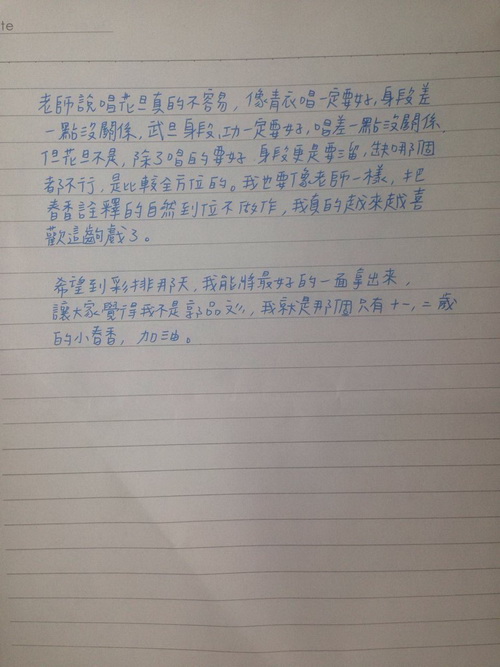 te
老師說唱花旦真的不容易，像青衣唱一定要好，身段差
一點沒關係，武旦身段、功一定要好，唱差一點沒關係，
但花旦不是，除了唱的要好，身段更是要溜，缺哪個
都不行，是比較全方位的。我也要像老師一樣，把
春香詮釋的自然到位不做作，我真的越來越喜
歡這齣戲了。
希望到彩排那天，我能將最好的一面拿出來，
讓大家覺得我不是郭品彣，我就是那個只有十一，二歲
的小春香，加油。